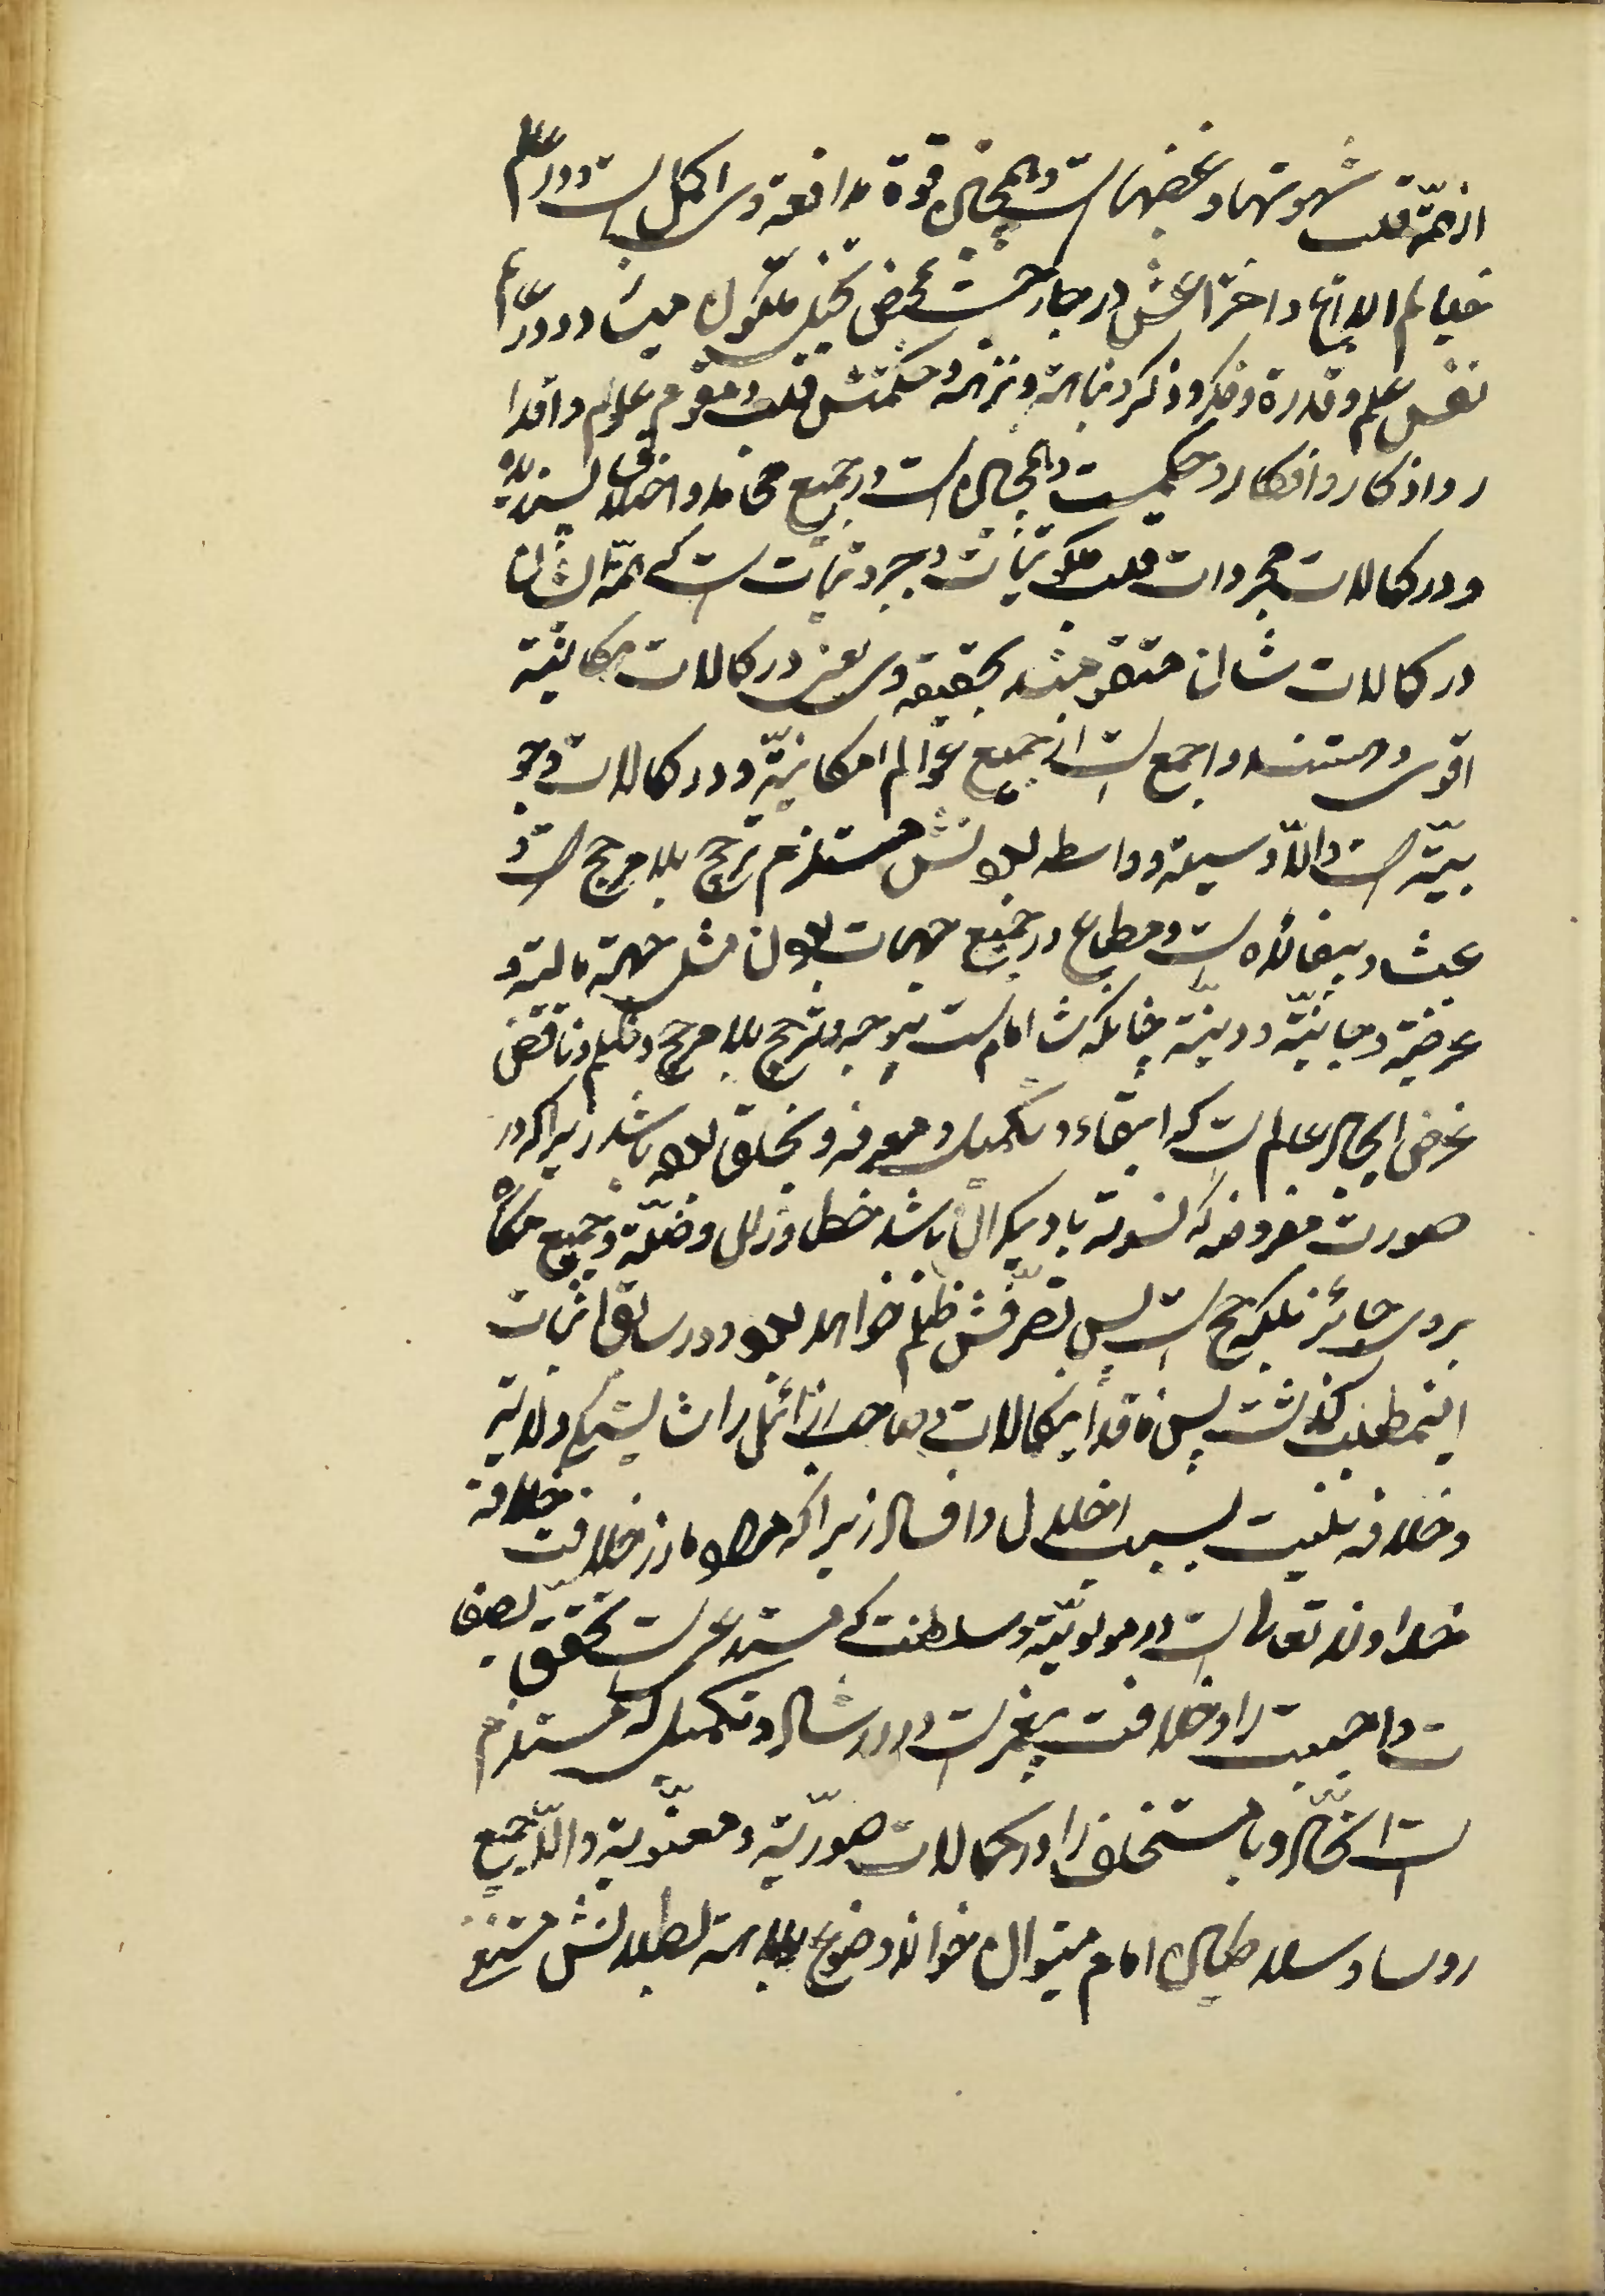 از همّه قلب شهوتها و غضبهاست و همچنان قوة مدافعه وی اکمل است و در عالم
خیال هم ابداع و اختراعش در مجار حسّ محض تخیل متکون میشود و در عالم
نفس علم و قدرة و فکر و ذکر و نباهة و نزاهة و حکمتش قلب و مقوم علوم و اقتدا
ر و اذکار و افکار و حکمست و همچنان است در جمیع محامد و اخلاق پسندیده
و در کمالات مجردات قلب ملکوتیات و جبروتیات است که همّه ایشان
در کمالات شان مفتقر میشد بحقیقه وی یعنی در کمالات مکانیّه
اقوی و اجمع است از جمیع عوالم امکانیّه و در کمالات وجو
بیّه است و الّا وسیلة و واسطه بودنش مستلزم ترجیح بلا مرجح است و
عبث و بیفائده است و مطاع در جمیع جهات بودن مثل جهة مالیّه و
عرضیّه و جانیّه و دینیّه چنانکه شان امام است بیوجه و ترجیح بلا مرجح و ظلم و ناقض
غرض ایجاد عالم است که ابقاء و تکمیل و معرفه و تخلق بوده باشد زیرا که در
صورت مفروضه که نسوته با دیگران باشد خطا و زلل و ضلّة و جمیع مکاره
بر وی جائز بلکه حجست پس تصرّفش ظلم خواهد بود و در سابق اثبات
اینمطلب گذشت پس فاقد اینکمالات و صاحب رذائل را شایستگی ولایة
و خلافه نیست بسبب اخلال و افساد زیرا که مراد ما از خلافت خلافة
خداوند تعالی است در مولویّة و سلطنت که مستدعی است تحقق بصفا
ت واجبیت را و خلافت پیغمبر است در ارشاد و تکمیل که مستلزم
است اتّحاد با مستخلف را در کمالات صوریّة و معنویّة و الّا جمیع
روسا و سلاطین را امام میتوان خواند و ضوح بداهة بطلانش مستغنی